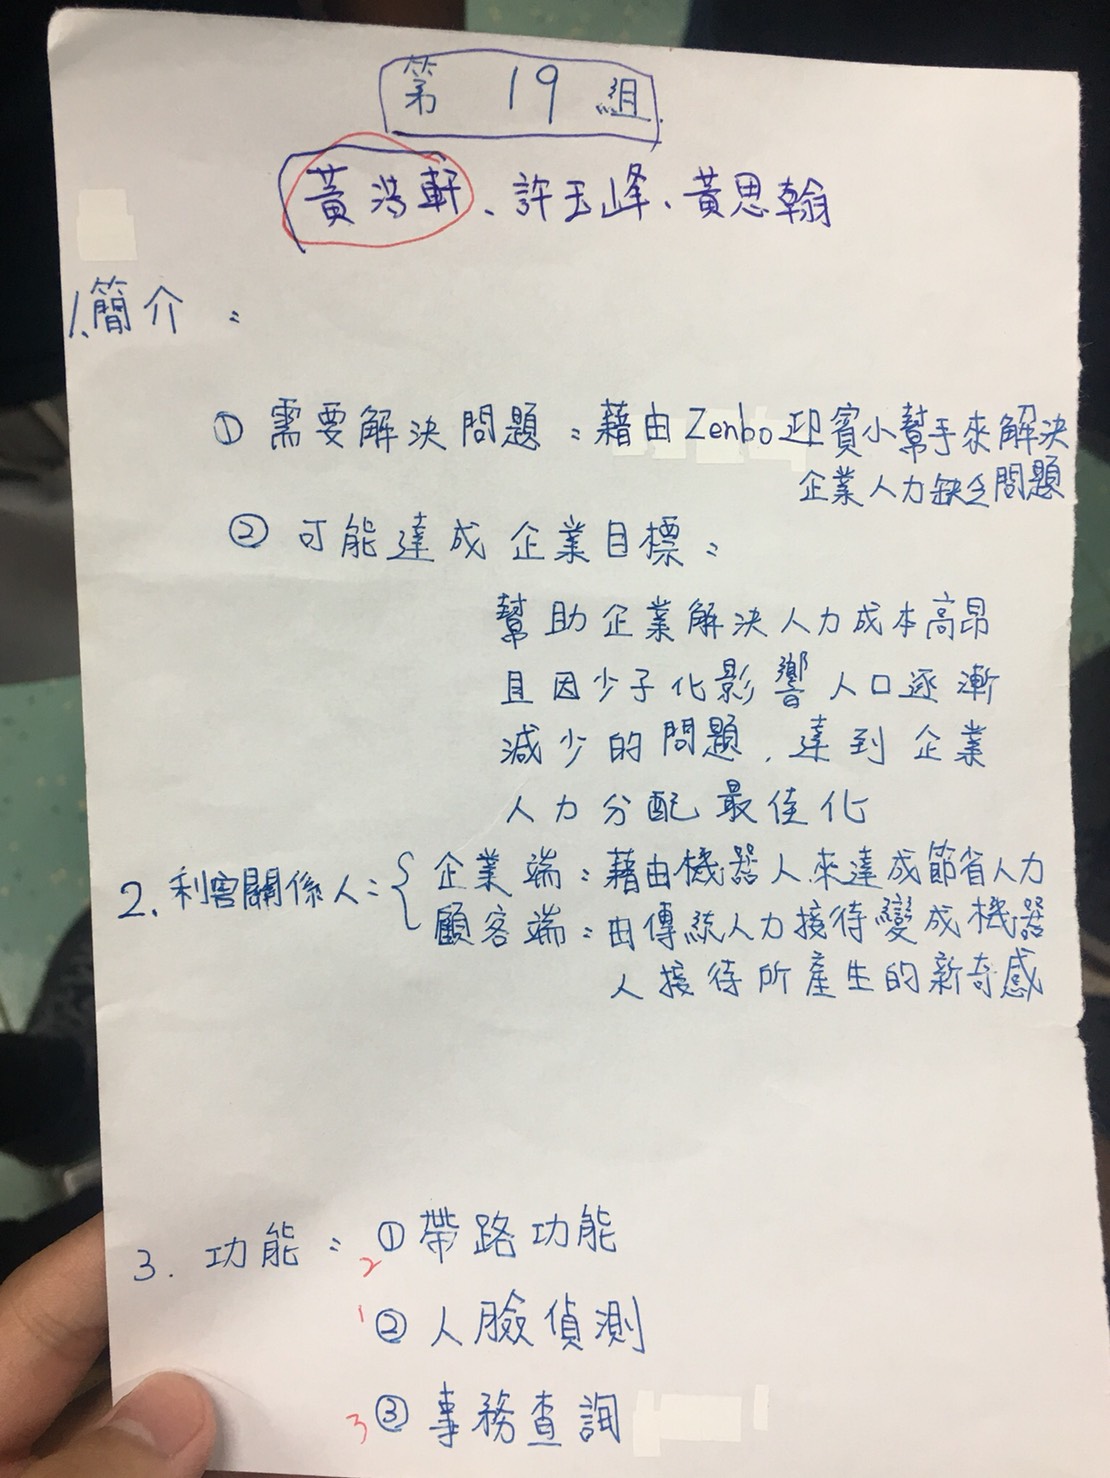 第 19 組
黃浩軒、許玉峰、黃思翰
1.簡介：
① 需要解決問題：藉由Zenbo迎賓小幫手來解決
企業人力缺乏問題
② 可能達成企業目標：
幫助企業解決人力成本高昂
且因少子化影響人口逐漸
減少的問題，達到企業
人力分配最佳化
2.利害關係人：{企業端：藉由機器人來達成節省人力
顧客端：由傳統人力接待變成機器
人接待所產生的新奇感
3.功能：①帶路功能
2
1 ②人臉偵測
3 ③事務查詢